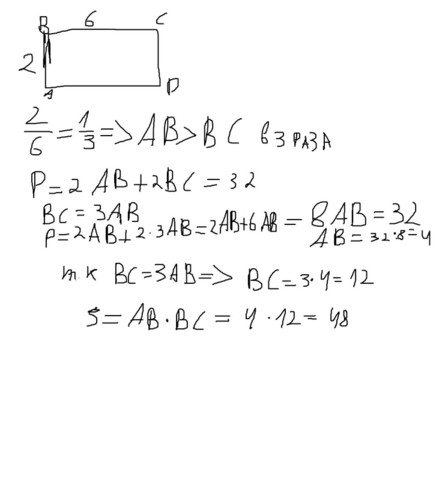 B 6 C
2
A D
2/6 = 1/3 => AB > BC в 3 РАЗА
P = 2 AB + 2BC = 32
BC = 3AB
P = 2AB + 2·3AB = 2AB + 6AB = 8AB = 32
AB = 32·8 = 4
т.к BC = 3AB => BC = 3·4 = 12
S = AB · BC = 4 · 12 = 48